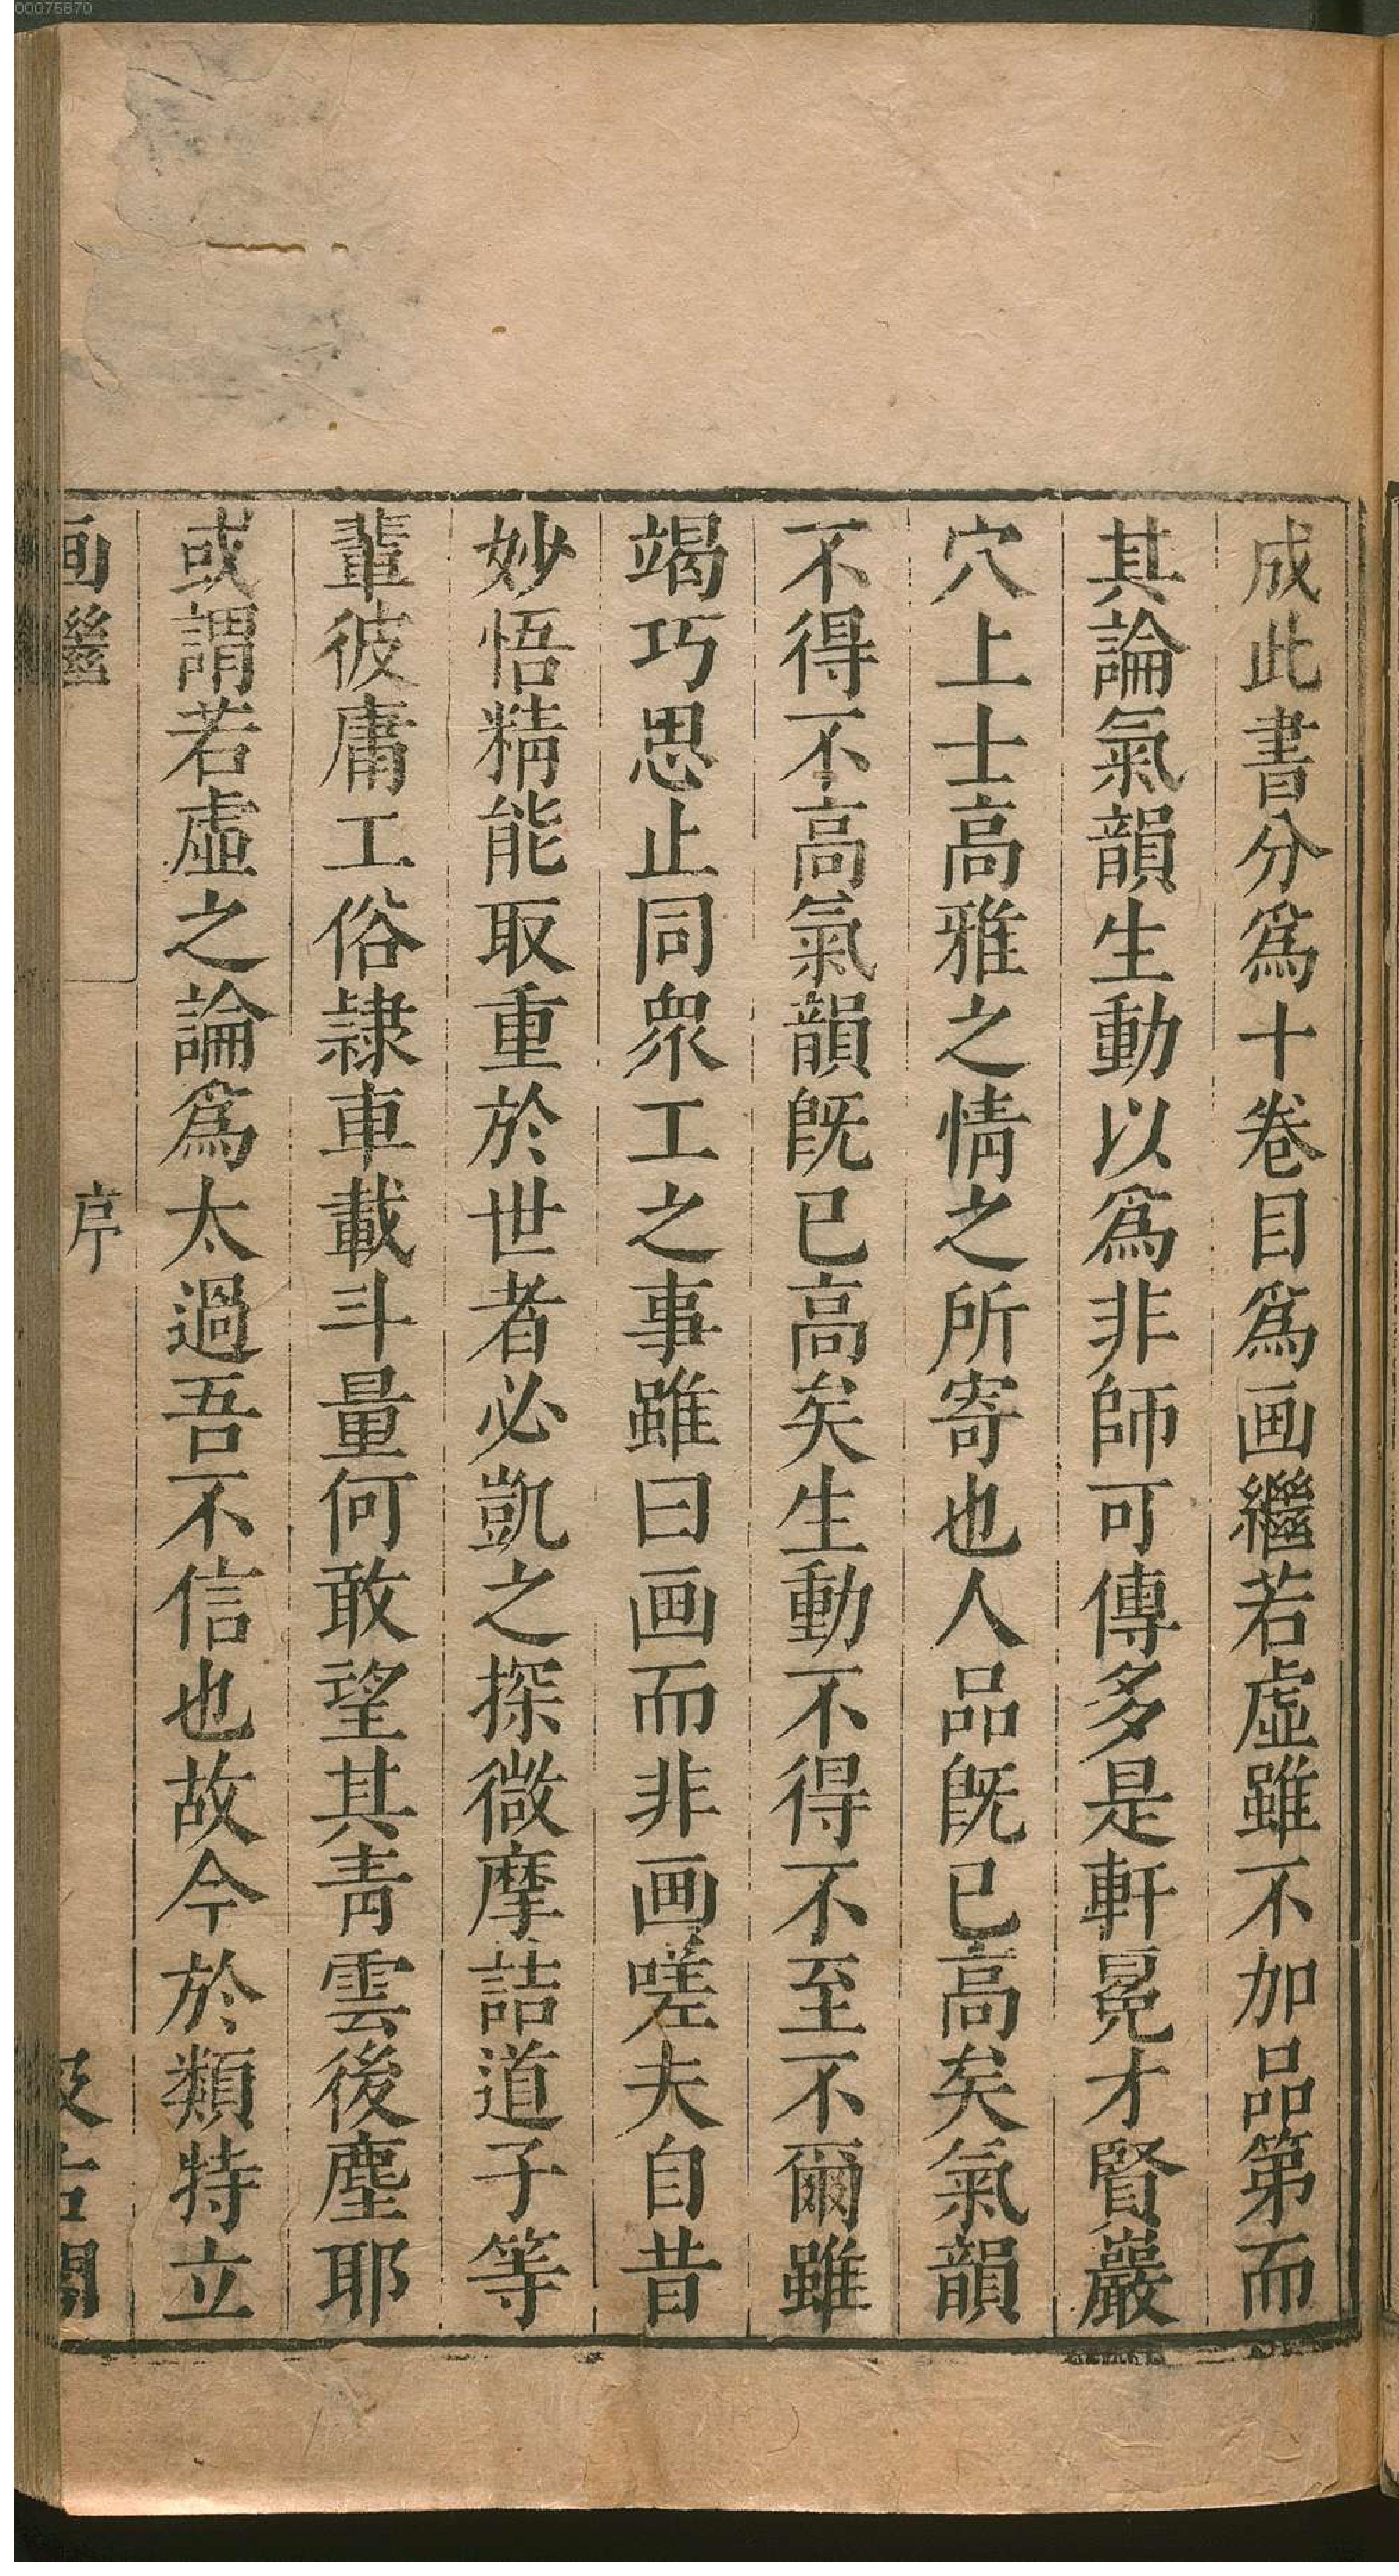 00075870
成此書分爲十卷目爲画繼若虛雖不加品第而
其論氣韻生動以爲非師可傳多是軒冕才賢巖
穴上士高雅之情之所寄也人品旣已高矣氣韻
不得不高氣韻旣已高矣生動不得不至不爾雖
竭巧思止同衆工之事雖曰画而非画嗟夫自昔
妙悟精能取重於世者必凱之探微摩詰道子等
輩彼庸工俗隷車載斗量何敢望其青雲後塵耶
或謂若虛之論爲太過吾不信也故今於類特立
画繼
序
汲古閣